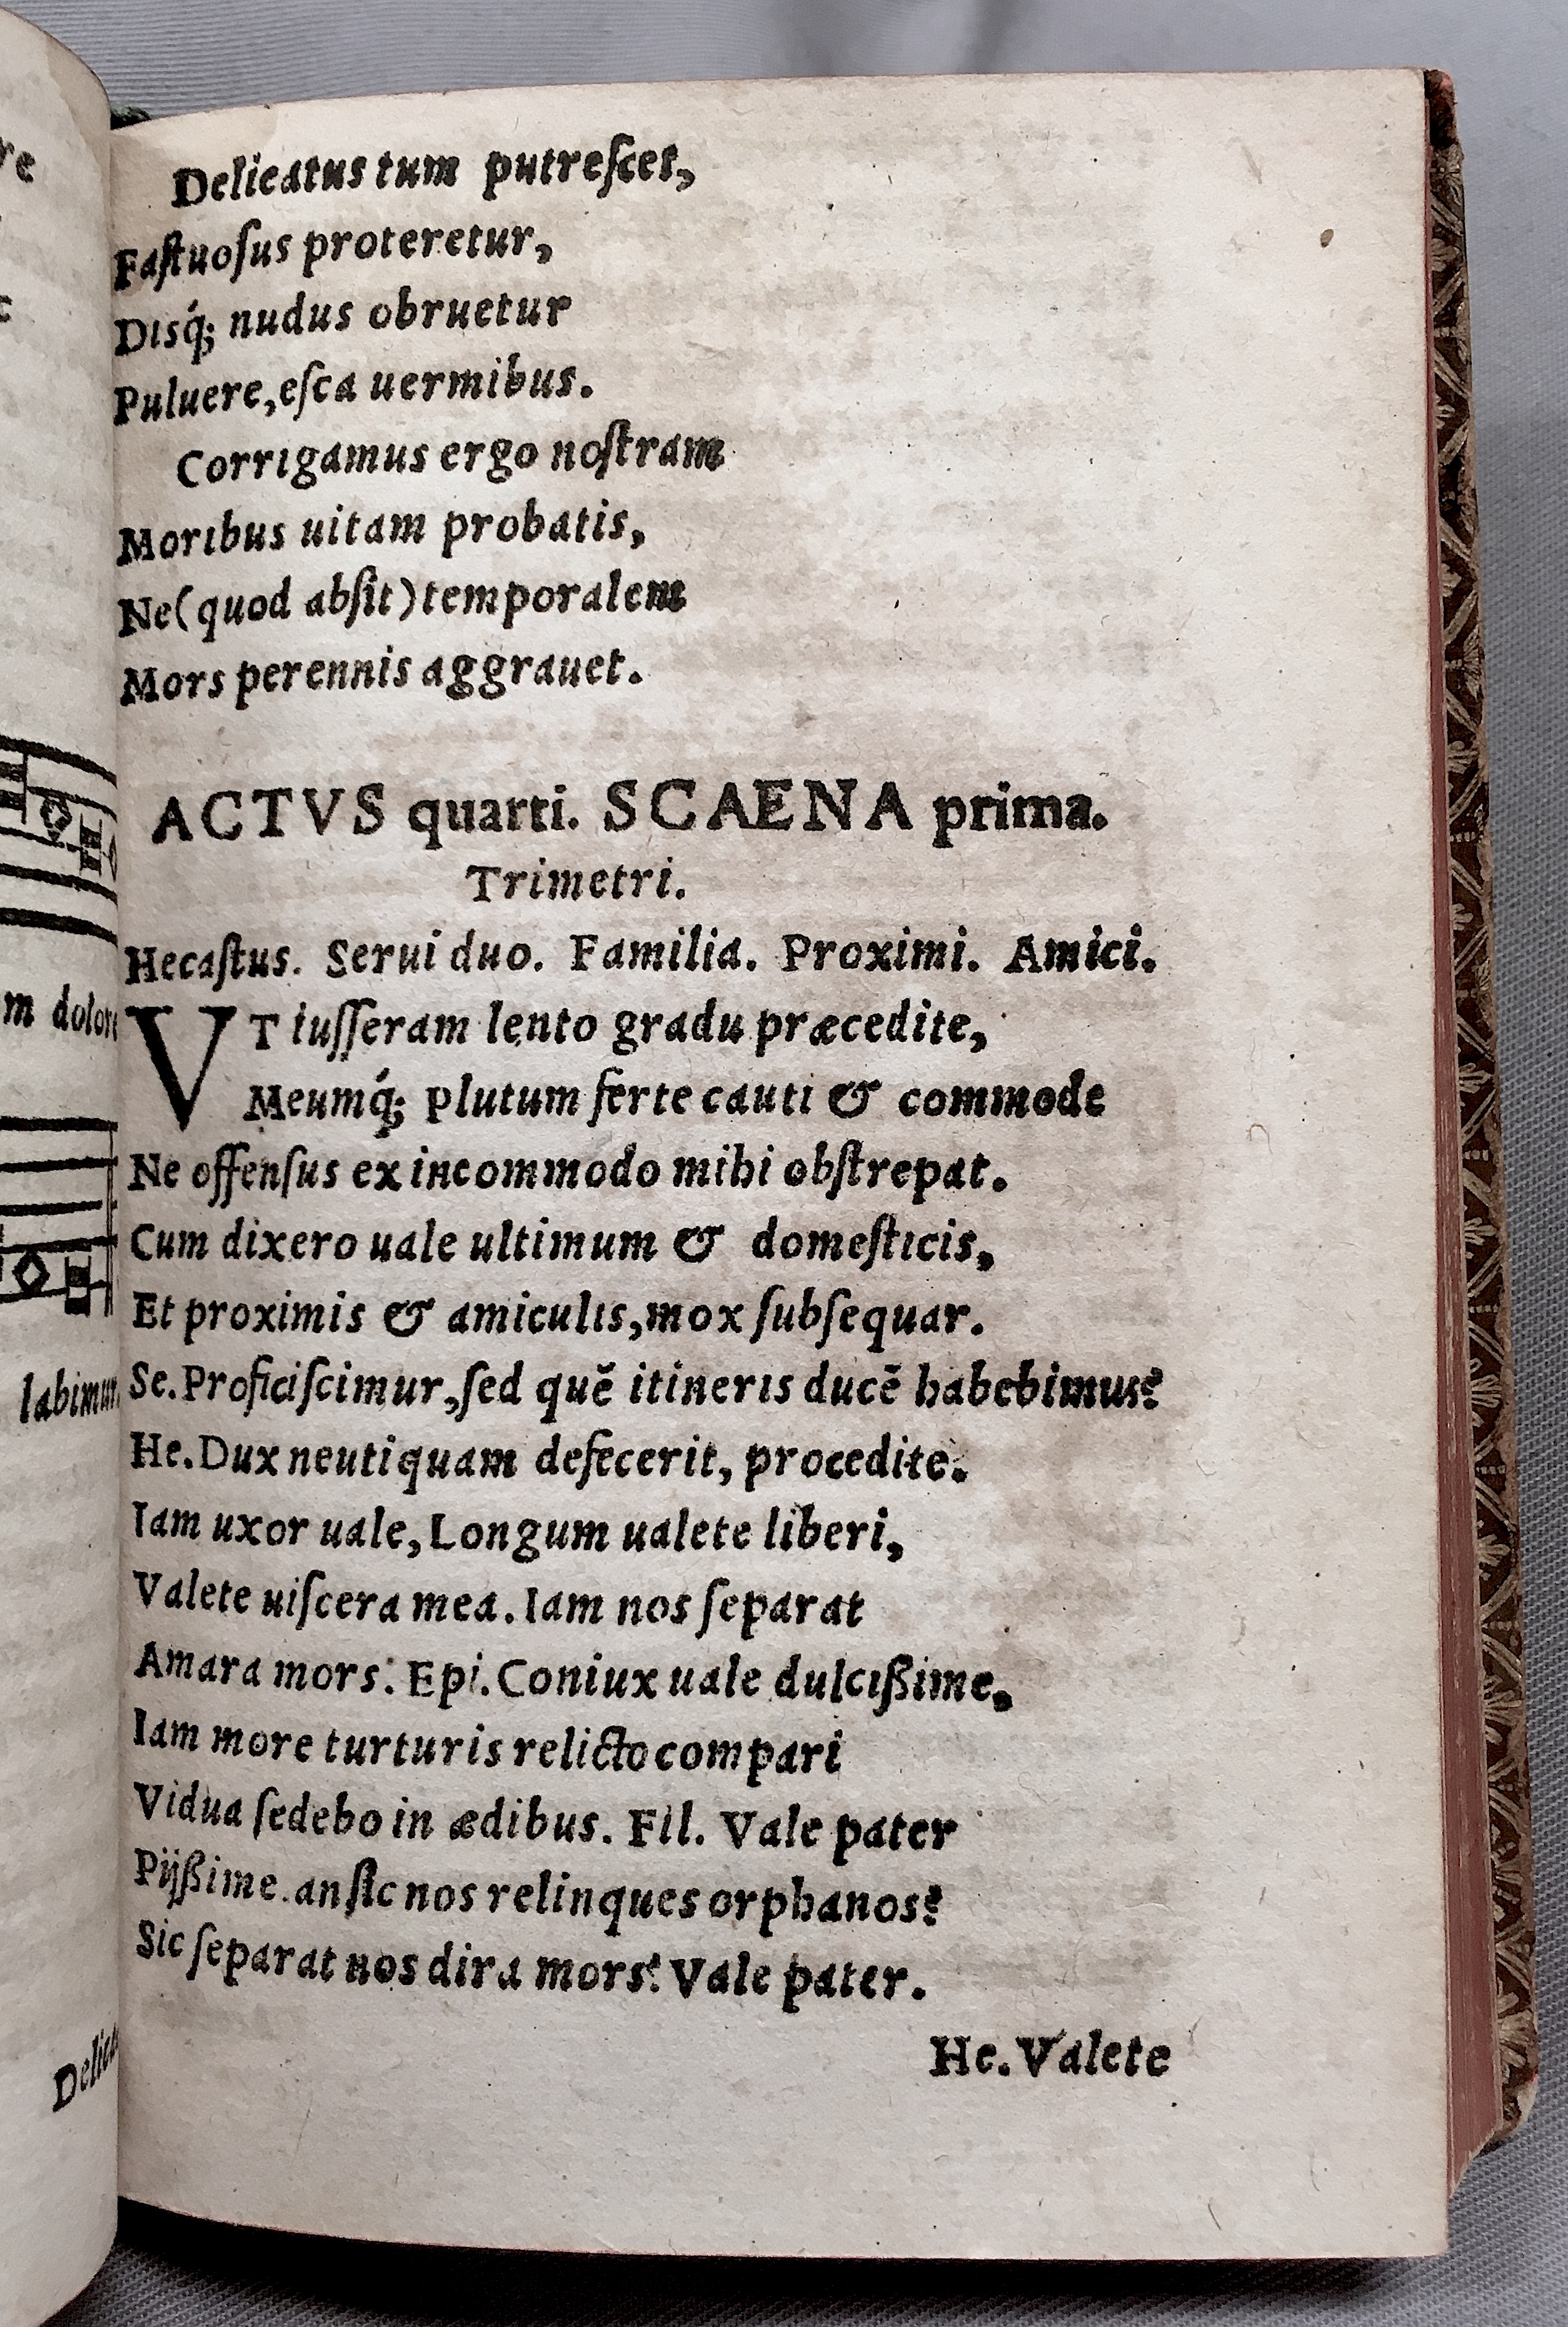 Delicatus tum putreſcet,
Faſtuoſus proteretur,
Disq́; nudus obruetur
Puluere, eſca uermibus.
Corrigamus ergo noſtram
Moribus uitam probatis,
Ne (quod abſit) temporalem
Mors perennis aggrauet.
ACTVS quarti. SCAENA prima.
Trimetri.
Hecaſtus. Serui duo. Familia. Proximi. Amici.
VT iuſſeram lento gradu præcedite,
Meumq́; Plutum ferte cauti & commode
Ne offenſus ex incommodo mihi obſtrepat.
Cum dixero uale ultimum & domeſticis,
Et proximis & amiculis, mox ſubſequar.
Se. Proficiſcimur, ſed quē itineris ducē habebimus?
He. Dux neutiquam defecerit, procedite.
Iam uxor uale, Longum ualete liberi,
Valete uiſcera mea. Iam nos ſeparat
Amara mors: Epi. Coniux uale dulcißime,
Iam more turturis relicto compari
Vidua ſedebo in ædibus. Fil. Vale pater
Pijßime. an ſic nos relinques orphanos?
Sic ſeparat nos dira mors? Vale pater.
He. Valete
re
m dolore
labimur
Delica